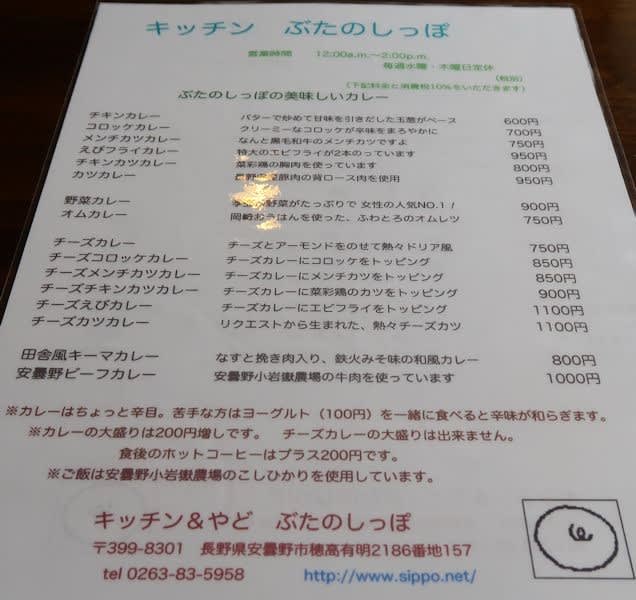 キッチン ぶたのしっぽ
営業時間 12:00a.m.〜2:00p.m.
毎週水曜・木曜日定休
(税別)
(下記料金と消費税10%をいただきます)
ぶたのしっぽの美味しいカレー
チキンカレー バターで炒めて甘味を引きだした玉葱がベース 600円
コロッケカレー クリーミーなコロッケが辛味をまろやかに 700円
メンチカツカレー なんと黒毛和牛のメンチカツですよ 750円
えびフライカレー 特大のエビフライが2本のっています 950円
チキンカツカレー 菜彩鶏の胸肉を使っています 800円
カツカレー 豚肉の背ロース肉を使用 950円
野菜カレー 野菜がたっぷりで 女性の人気NO.1! 900円
オムカレー 岡崎おうはんを使った、ふわとろのオムレツ 750円
チーズカレー チーズとアーモンドをのせて熱々ドリア風 750円
チーズコロッケカレー チーズカレーにコロッケをトッピング 850円
チーズメンチカツカレー チーズカレーにメンチカツをトッピング 850円
チーズチキンカツカレー チーズカレーに菜彩鶏のカツをトッピング 900円
チーズえびカレー チーズカレーにエビフライをトッピング 1100円
チーズカツカレー リクエストから生まれた、熱々チーズカツ 1100円
田舎風キーマカレー なすと挽き肉入り、鉄火みそ味の和風カレー 800円
安曇野ビーフカレー 安曇野小岩嶽農場の牛肉を使っています 1000円
※カレーはちょっと辛目。苦手な方はヨーグルト(100円)を一緒に食べると辛味が和らぎます。
※カレーの大盛りは200円増しです。 チーズカレーの大盛りは出来ません。
食後のホットコーヒーはプラス200円です。
※ご飯は安曇野小岩嶽農場のこしひかりを使用しています。
キッチン&やど ぶたのしっぽ
〒399-8301 長野県安曇野市穂高有明2186番地157
tel 0263-83-5958 http://www.sippo.net/